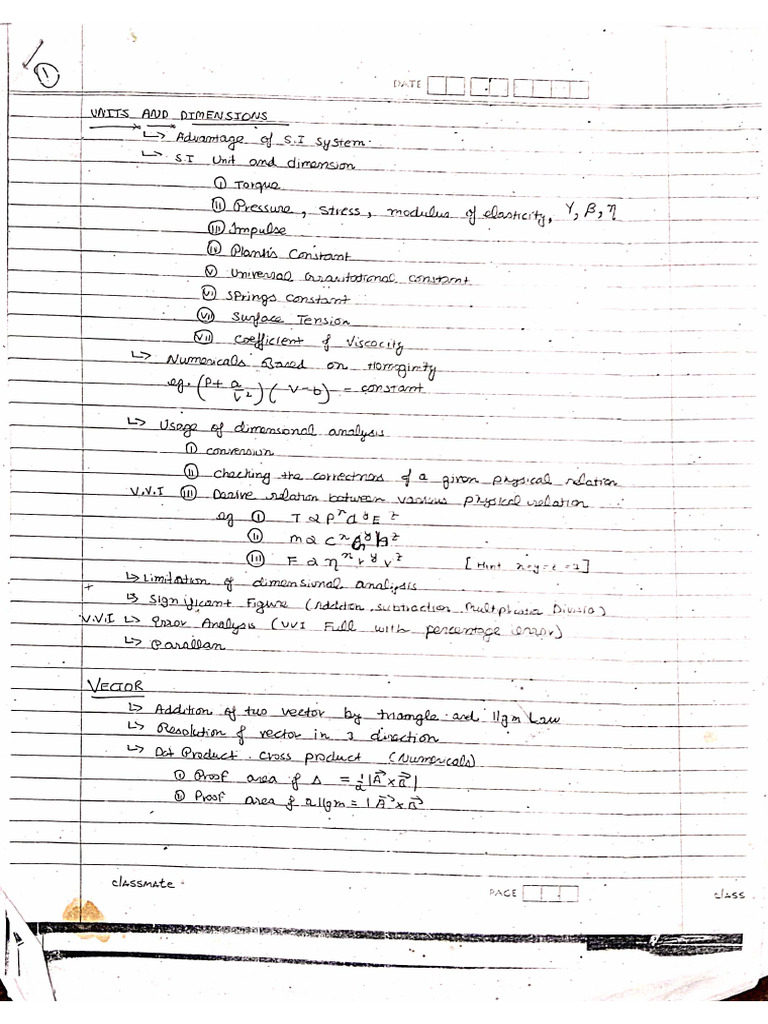 ①
DATE
UNITS AND DIMENSIONS
↳ Advantage of S.I System.
↳ S.I Unit and dimension
ⓘ Torque
ⅱ Pressure, Stress, modulus of elasticity, Y, β, η
ⅲ Impulse
ⅳ Plank's Constant
ⅴ Universal Gravitational constant
ⅵ Springs Constant
ⅶ Surface Tension
ⅷ Coefficient of Viscocity
↳ Numericals Based on Homoginity
eg. (P + a/V²)(V-b) = constant
↳ Usage of dimensional analysis
ⓘ conversion
ⅱ checking the correctness of a given physical relation
V.V.I ⅲ Derive relation between various physical relation
eg ⓘ T ∝ P^x d^y E^z
ⅱ m ∝ C^x G^y h^z
ⅲ F ∝ η^x r^y v^z [Hint x=y=z=1]
↳ Limitation of dimensional analysis
↳ Significant Figure (Addition, Subtraction, Multiplication Division)
V.V.I ↳ Error Analysis (VVI Full with percentage error)
↳ Parallax
VECTOR
↳ Addition of two vector by triangle and llgm Law
↳ Resolution of vector in 3 direction
↳ Dot Product. Cross product (Numericals)
ⓘ Proof area of Δ = ½|A⃗ × B⃗|
ⅱ Proof area of a llgm = |A⃗ × B⃗|
classmate
PAGE
class